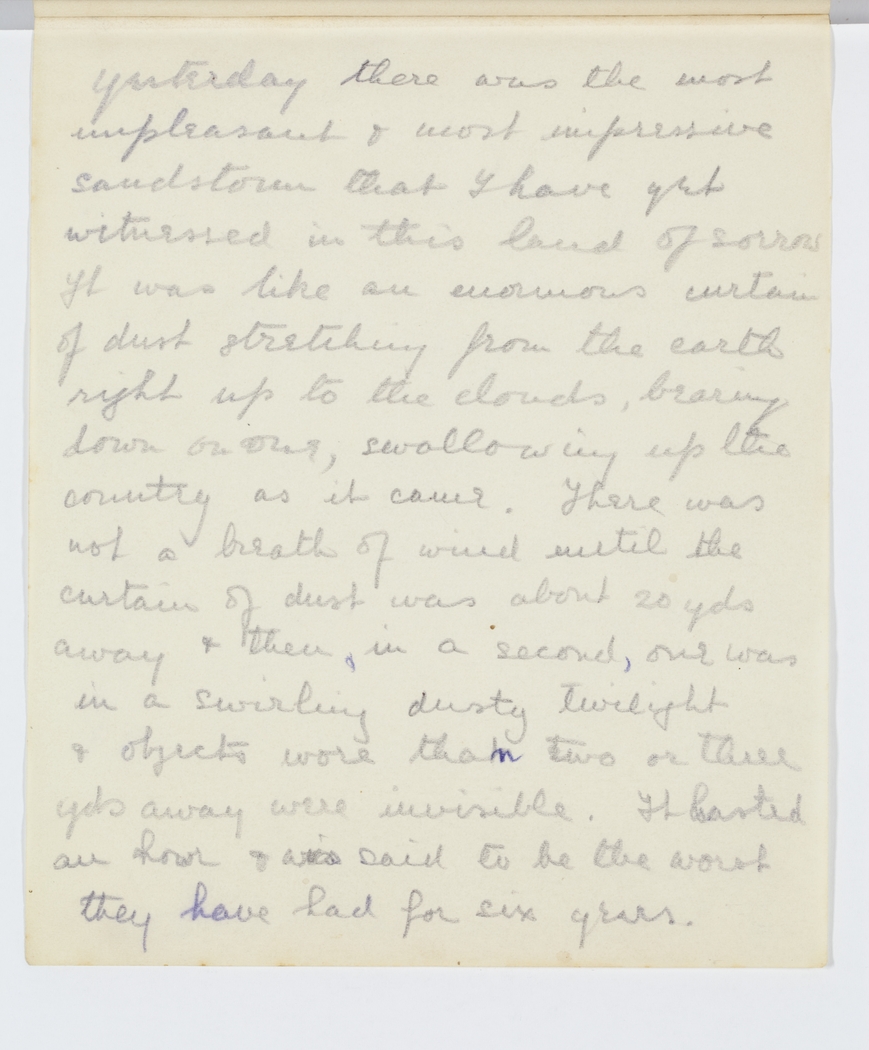 yesterday there was the most
unpleasant & most impressive
sandstorm that I have yet
witnessed in this land of sorrow
It was like an enormous curtain
of dust stretching from the earth
right up to the clouds, bearing
down on one, swallowing up the
country as it came. There was
not a breath of wind until the
curtain of dust was about 20 yds
away & then, in a second, one was
in a swirling dusty twilight
& objects more than two or three
yds away were invisible. It lasted
an hour & was said to be the worst
they have had for six years.